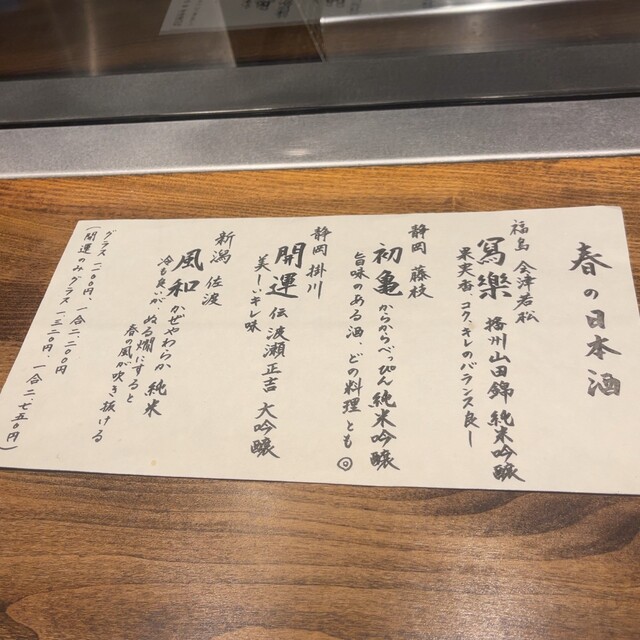 春の日本酒
福島 会津若松
冩樂 播州山田錦 純米吟醸
果実香、コク、キレのバランス良し
静岡 藤枝
初亀 からからべっぴん 純米吟醸
旨味のある酒、どの料理とも◎
静岡 掛川
開運 伝 波瀬正吉 大吟醸
美しいキレ味
新潟 佐渡
風和 かぜやわらか 純米
冷も良いが、ぬる燗にすると
春の風が吹き抜ける
グラス 一二〇〇円、一合 二、二〇〇円
(開運のみグラス 一、三二〇円、一合 二、七五〇円)